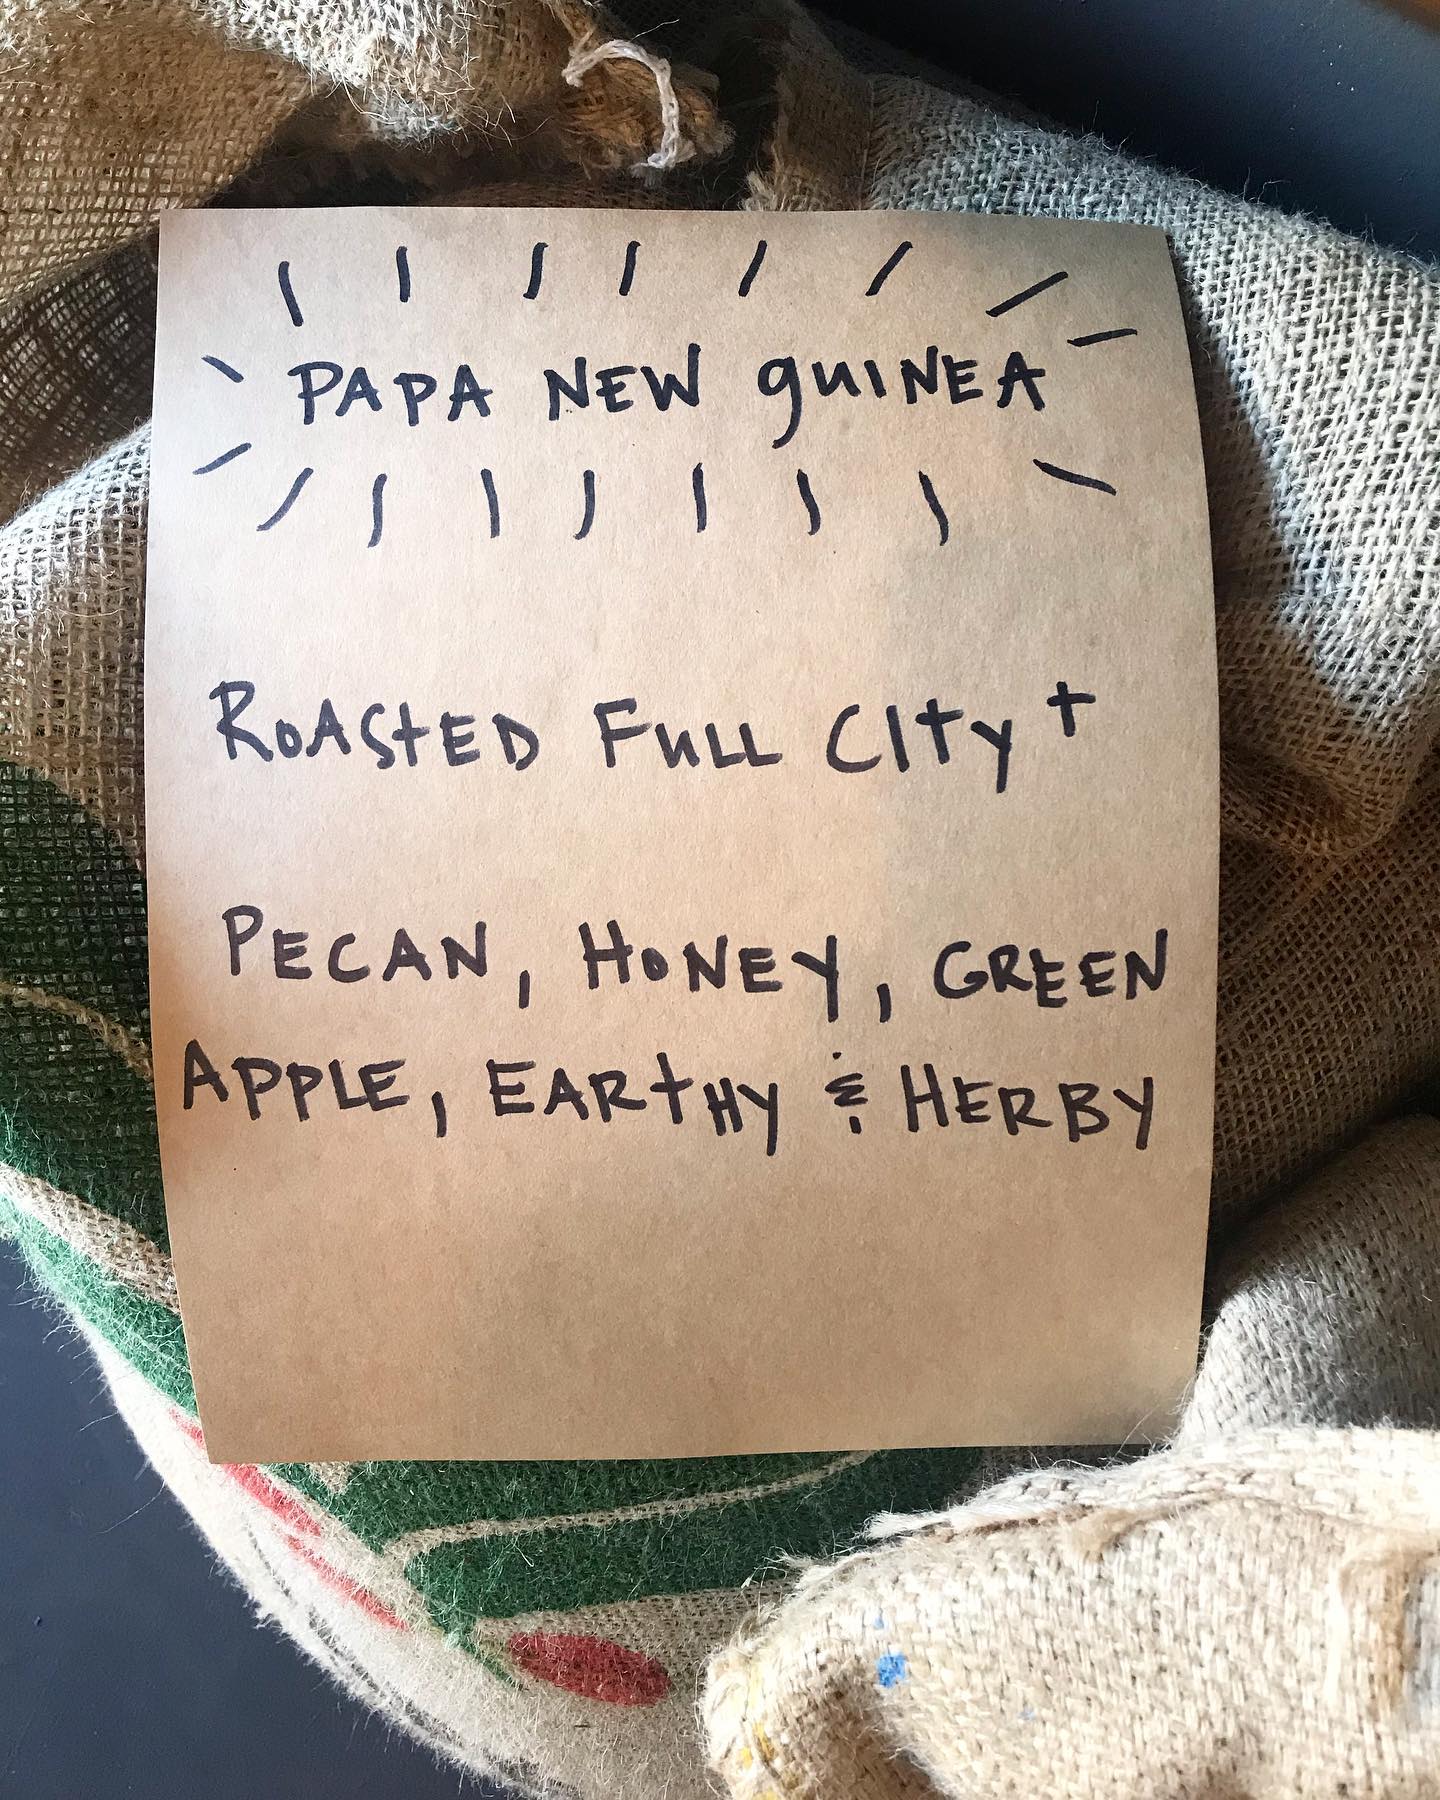 PAPA NEW GUINEA
ROASTED FULL CITY +
PECAN, HONEY, GREEN
APPLE, EARTHY & HERBY